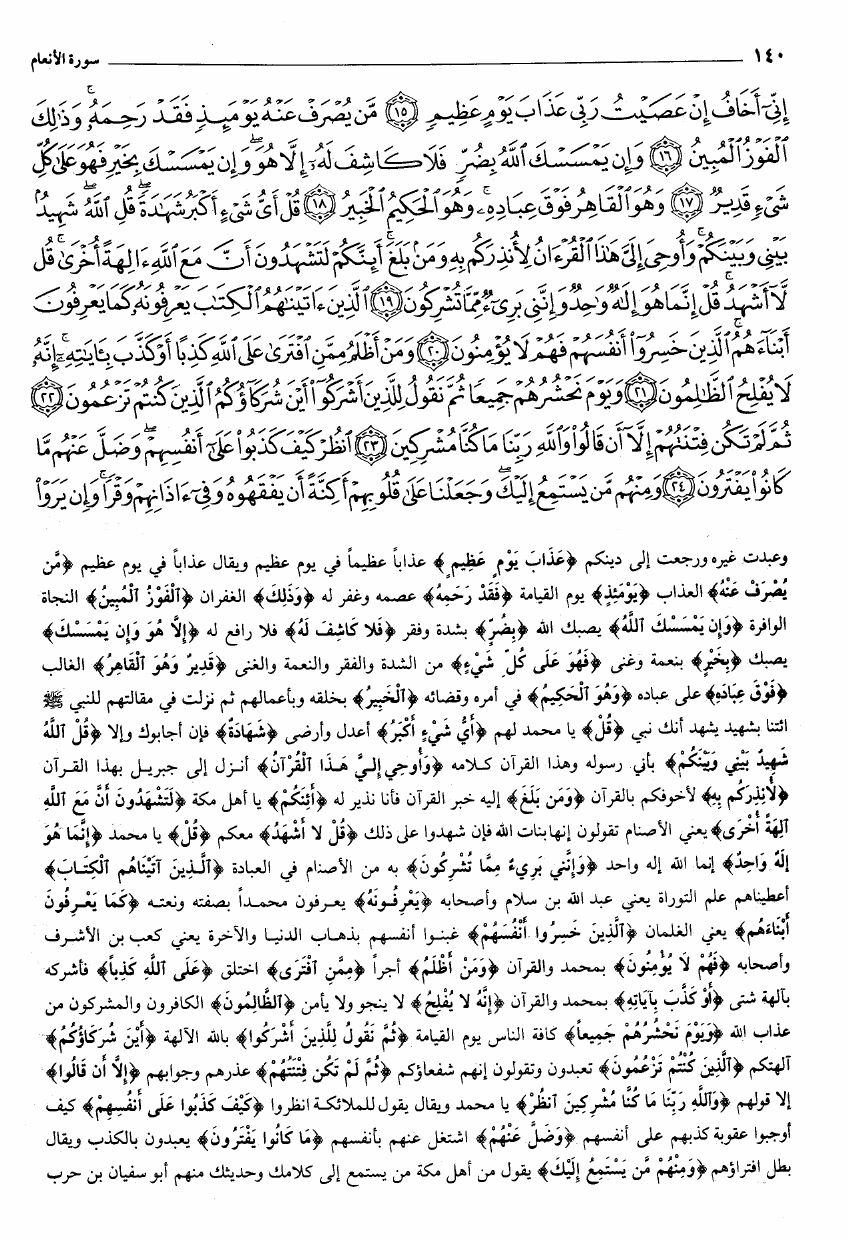 ١٤٠ سورة الأنعام
إِنِّىٓ أَخَافُ إِنْ عَصَيْتُ رَبِّى عَذَابَ يَوْمٍ عَظِيمٍ ﴿١٥﴾ مَّن يُصْرَفْ عَنْهُ يَوْمَئِذٍ فَقَدْ رَحِمَهُۥ ۚ وَذَٰلِكَ
ٱلْفَوْزُ ٱلْمُبِينُ ﴿١٦﴾ وَإِن يَمْسَسْكَ ٱللَّهُ بِضُرٍّ فَلَا كَاشِفَ لَهُۥٓ إِلَّا هُوَ ۖ وَإِن يَمْسَسْكَ بِخَيْرٍ فَهُوَ عَلَىٰ كُلِّ
شَىْءٍ قَدِيرٌ ﴿١٧﴾ وَهُوَ ٱلْقَاهِرُ فَوْقَ عِبَادِهِۦ ۚ وَهُوَ ٱلْحَكِيمُ ٱلْخَبِيرُ ﴿١٨﴾ قُلْ أَىُّ شَىْءٍ أَكْبَرُ شَهَٰدَةً ۖ قُلِ ٱللَّهُ ۖ شَهِيدٌۢ
بَيْنِى وَبَيْنَكُمْ ۚ وَأُوحِىَ إِلَىَّ هَٰذَا ٱلْقُرْءَانُ لِأُنذِرَكُم بِهِۦ وَمَنۢ بَلَغَ ۚ أَئِنَّكُمْ لَتَشْهَدُونَ أَنَّ مَعَ ٱللَّهِ ءَالِهَةً أُخْرَىٰ ۚ قُل
لَّآ أَشْهَدُ ۚ قُلْ إِنَّمَا هُوَ إِلَٰهٌ وَٰحِدٌ وَإِنَّنِى بَرِىٓءٌ مِّمَّا تُشْرِكُونَ ﴿١٩﴾ ٱلَّذِينَ ءَاتَيْنَٰهُمُ ٱلْكِتَٰبَ يَعْرِفُونَهُۥ كَمَا يَعْرِفُونَ
أَبْنَآءَهُمُ ۘ ٱلَّذِينَ خَسِرُوٓا۟ أَنفُسَهُمْ فَهُمْ لَا يُؤْمِنُونَ ﴿٢٠﴾ وَمَنْ أَظْلَمُ مِمَّنِ ٱفْتَرَىٰ عَلَى ٱللَّهِ كَذِبًا أَوْ كَذَّبَ بِـَٔايَٰتِهِۦٓ ۗ إِنَّهُۥ
لَا يُفْلِحُ ٱلظَّٰلِمُونَ ﴿٢١﴾ وَيَوْمَ نَحْشُرُهُمْ جَمِيعًا ثُمَّ نَقُولُ لِلَّذِينَ أَشْرَكُوٓا۟ أَيْنَ شُرَكَآؤُكُمُ ٱلَّذِينَ كُنتُمْ تَزْعُمُونَ ﴿٢٢﴾
ثُمَّ لَمْ تَكُن فِتْنَتُهُمْ إِلَّآ أَن قَالُوا۟ وَٱللَّهِ رَبِّنَا مَا كُنَّا مُشْرِكِينَ ﴿٢٣﴾ ٱنظُرْ كَيْفَ كَذَبُوا۟ عَلَىٰٓ أَنفُسِهِمْ ۚ وَضَلَّ عَنْهُم مَّا
كَانُوا۟ يَفْتَرُونَ ﴿٢٤﴾ وَمِنْهُم مَّن يَسْتَمِعُ إِلَيْكَ ۖ وَجَعَلْنَا عَلَىٰ قُلُوبِهِمْ أَكِنَّةً أَن يَفْقَهُوهُ وَفِىٓ ءَاذَانِهِمْ وَقْرًا ۚ وَإِن يَرَوْا۟
وعبدت غيره ورجعت إلى دينكم ﴿عَذَابَ يَوْمٍ عَظِيمٍ﴾ عذاباً عظيماً في يوم عظيم ويقال عذاباً في يوم عظيم ﴿مَّن
يُصْرَفْ عَنْهُ﴾ العذاب ﴿يَوْمَئِذٍ﴾ يوم القيامة ﴿فَقَدْ رَحِمَهُ﴾ عصمه وغفر له ﴿وَذَلِكَ﴾ الغفران ﴿ٱلْفَوْزُ ٱلْمُبِينُ﴾ النجاة
الوافرة ﴿وَإِن يَمْسَسْكَ ٱللَّهُ﴾ يصبك الله ﴿بِضُرٍّ﴾ بشدة وفقر ﴿فَلَا كَاشِفَ لَهُ﴾ فلا رافع له ﴿إِلَّا هُوَ وَإِن يَمْسَسْكَ﴾
يصبك ﴿بِخَيْرٍ﴾ بنعمة وغنى ﴿فَهُوَ عَلَى كُلِّ شَيْءٍ﴾ من الشدة والفقر والنعمة والغنى ﴿قَدِيرٌ وَهُوَ ٱلْقَاهِرُ﴾ الغالب
﴿فَوْقَ عِبَادِهِ﴾ على عباده ﴿وَهُوَ ٱلْحَكِيمُ﴾ في أمره وقضائه ﴿ٱلْخَبِيرُ﴾ بخلقه وبأعمالهم ثم نزلت في مقالتهم للنبي ﷺ
ائتنا بشهيد يشهد أنك نبي ﴿قُلْ﴾ يا محمد لهم ﴿أَيُّ شَيْءٍ أَكْبَرُ﴾ أعدل وأرضى ﴿شَهَادَةً﴾ فإن أجابوك وإلا ﴿قُلْ ٱللَّهُ
شَهِيدٌ بَيْنِي وَبَيْنَكُمْ﴾ بأني رسوله وهذا القرآن كلامه ﴿وَأُوحِيَ إِلَيَّ هَـٰذَا ٱلْقُرْآنُ﴾ أنزل إلى جبريل بهذا القرآن
﴿لِأُنْذِرَكُم بِهِ﴾ لأخوفكم بالقرآن ﴿وَمَن بَلَغَ﴾ إليه خبر القرآن فأنا نذير له ﴿أَئِنَّكُمْ﴾ يا أهل مكة ﴿لَتَشْهَدُونَ أَنَّ مَعَ ٱللَّهِ
آلِهَةً أُخْرَى﴾ يعني الأصنام تقولون إنها بنات الله فإن شهدوا على ذلك ﴿قُلْ لَا أَشْهَدُ﴾ معكم ﴿قُلْ﴾ يا محمد ﴿إِنَّمَا هُوَ
إِلَهٌ وَاحِدٌ﴾ إنما الله إله واحد ﴿وَإِنَّنِي بَرِيءٌ مِمَّا تُشْرِكُونَ﴾ به من الأصنام في العبادة ﴿ٱلَّذِينَ آتَيْنَاهُم ٱلْكِتَابَ﴾
أعطيناهم علم التوراة يعني عبد الله بن سلام وأصحابه ﴿يَعْرِفُونَهُ﴾ يعرفون محمداً بصفته ونعته ﴿كَمَا يَعْرِفُونَ
أَبْنَاءَهُم﴾ يعني الغلمان ﴿ٱلَّذِينَ خَسِرُوا أَنْفُسَهُمْ﴾ غبنوا أنفسهم بذهاب الدنيا والآخرة يعني كعب بن الأشرف
وأصحابه ﴿فَهُمْ لَا يُؤْمِنُونَ﴾ بمحمد والقرآن ﴿وَمَنْ أَظْلَمُ﴾ أجرأ ﴿مِمَّنِ ٱفْتَرَى﴾ اختلق ﴿عَلَى ٱللَّهِ كَذِباً﴾ فأشركه
بآلهة شتى ﴿أَوْ كَذَّبَ بِآيَاتِهِ﴾ بمحمد والقرآن ﴿إِنَّهُ لَا يُفْلِحُ﴾ لا ينجو ولا يأمن ﴿ٱلظَّالِمُونَ﴾ الكافرون والمشركون من
عذاب الله ﴿وَيَوْمَ نَحْشُرُهُمْ جَمِيعاً﴾ كافة الناس يوم القيامة ﴿ثُمَّ نَقُولُ لِلَّذِينَ أَشْرَكُوا﴾ بالله الآلهة ﴿أَيْنَ شُرَكَاؤُكُمُ﴾
آلهتكم ﴿ٱلَّذِينَ كُنْتُمْ تَزْعُمُونَ﴾ تعبدون وتقولون إنهم شفعاؤكم ﴿ثُمَّ لَمْ تَكُن فِتْنَتُهُمْ﴾ عذرهم وجوابهم ﴿إِلَّا أَن قَالُوا﴾
إلا قولهم ﴿وَٱللَّهِ رَبِّنَا مَا كُنَّا مُشْرِكِينَ ٱنظُرْ﴾ يا محمد ويقال يقول للملائكة انظروا ﴿كَيْفَ كَذَبُوا عَلَى أَنْفُسِهِمْ﴾ كيف
أوجبوا عقوبة كذبهم على أنفسهم ﴿وَضَلَّ عَنْهُمْ﴾ اشتغل عنهم بأنفسهم ﴿مَا كَانُوا يَفْتَرُونَ﴾ يعبدون بالكذب ويقال
بطل افتراؤهم ﴿وَمِنْهُمْ مَّن يَسْتَمِعُ إِلَيْكَ﴾ يقول من أهل مكة من يستمع إلى كلامك وحديثك منهم أبو سفيان بن حرب